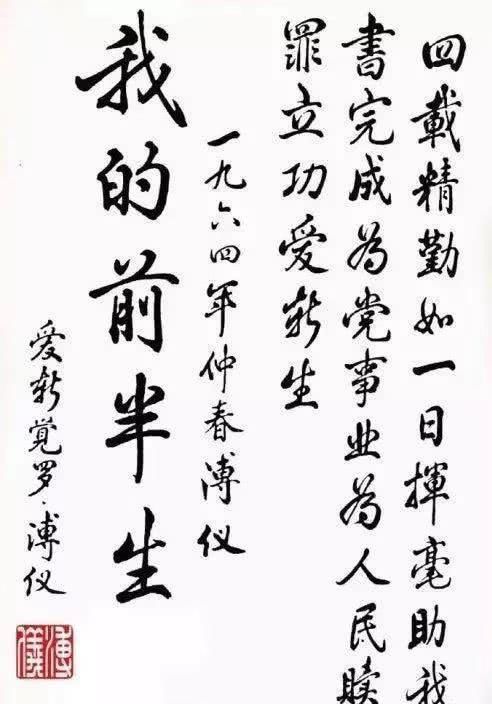 四載精勤如一日揮毫助我
書完成为党事业为人民赎
罪立功爱新生
一九六四年仲春溥仪
我的前半生
爱新觉罗·溥仪
溥儀